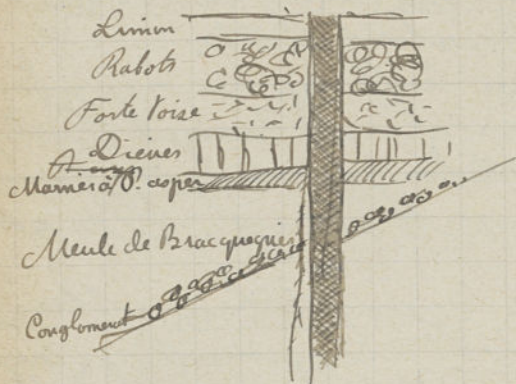 Limon
Rabots
Forte toise
Dièves
Marnes à O. asper
Meule de Bracquegnies
Conglomerat